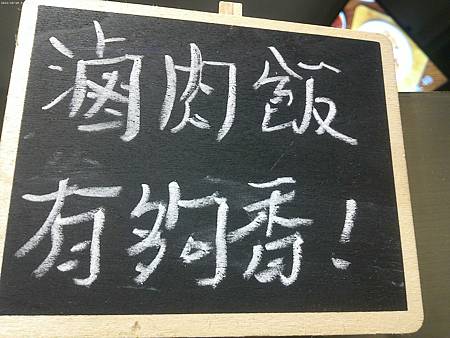 滷肉飯
有夠香！